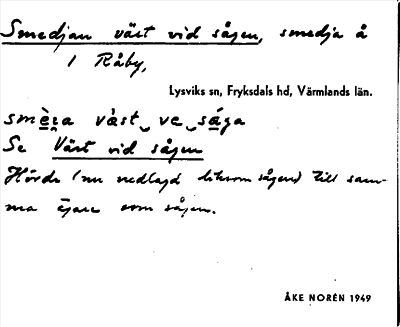 Smedjan väst vid sågen, smedja å
1 Råby,
Lysviks sn, Fryksdals hd, Värmlands län.
smè̱ɪa vàst‿ve‿sá̱ga
Se Väst vid sågen
Hörde (nu nedlagd liksom sågen) till sam-
ma ägare som sågen.
ÅKE NORÉN 1949